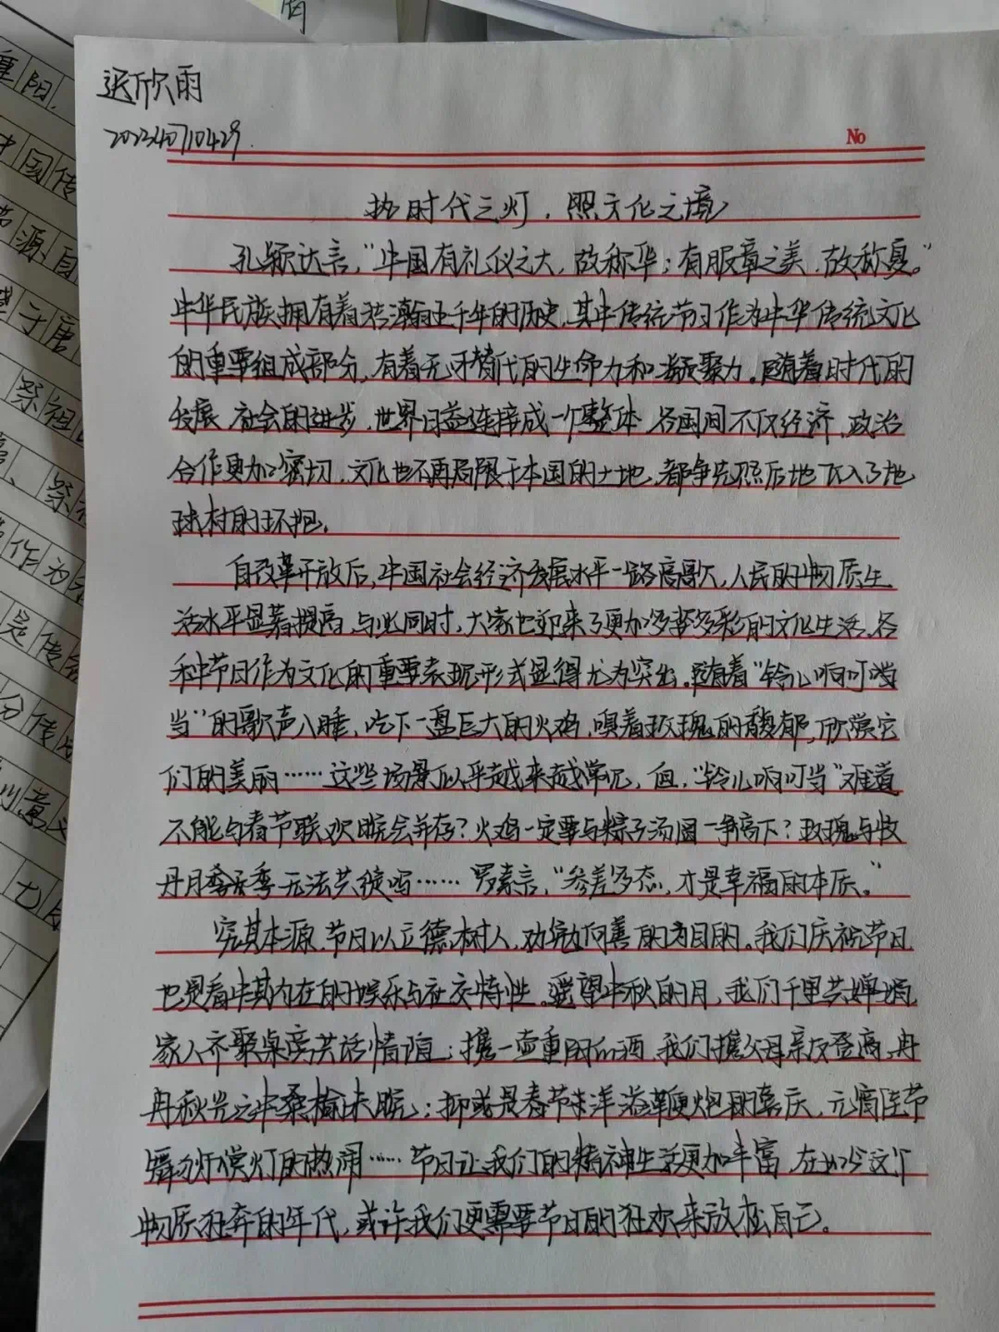 迟欣雨
202240710429.
No
执时代之灯，照文化之境
孔颖达言，“中国有礼仪之大，故称华；有服章之美，故称夏。”
中华民族拥有着浩瀚五千年的历史，其中传统节日作为中华传统文化
的重要组成部分，有着无可替代的生命力和凝聚力。随着时代的
发展，社会的进步，世界日益连接成一个整体，各国间不仅经济，政治
合作更加密切，文化也不再局限于本国的土地，都争先恐后地飞入了地
球村的环抱。
自改革开放后，中国社会经济发展水平一路高歌，人民的物质生
活水平显著提高，与此同时，大家也迎来了更加多姿多彩的文化生活，各
种节日作为文化的重要表现形式显得尤为突出。随着“铃儿响叮当
当”的歌声入睡，吃下一盘巨大的火鸡，嗅着玫瑰的馥郁，欣赏它
们的美丽……这些场景似乎越来越常见，但，“铃儿响叮当”难道
不能与春节联欢晚会并存？火鸡一定要与粽子汤圆一争高下？玫瑰与牡
丹月季无法共绽吗……罗素言，“参差多态，才是幸福的本质。”
究其本源，节日以立德树人，劝勉向善的为目的。我们庆祝节日
也是看中其内在的娱乐与社交特性。遥望中秋的月，我们千里共婵娟
家人齐聚桌旁共话情谊；携一壶重阳的酒，我们携父母亲友登高，冉
冉秋光之中桑榆未晚；抑或是春节洋洋溢鞭炮的喜庆，元宵佳节
舞龙灯赏灯的热闹……节日让我们的精神生活更加丰富，在如今这个
物质狂奔的年代，或许我们更需要节日的狂欢来放松自己。
重阳，
中国传
源自
于唐
祭祖
祭
作为
是传统
分传